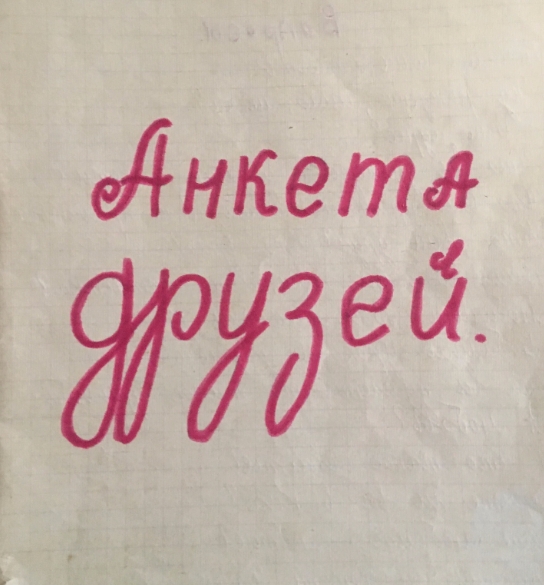 Анкета
друзей.